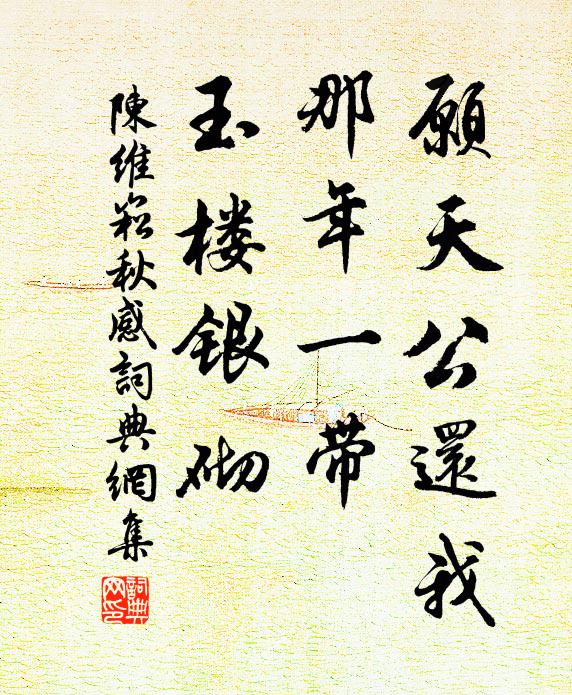 願天公還我
那年一带
玉楼银砌
陳維崧秋感詞典網集
詞典网印